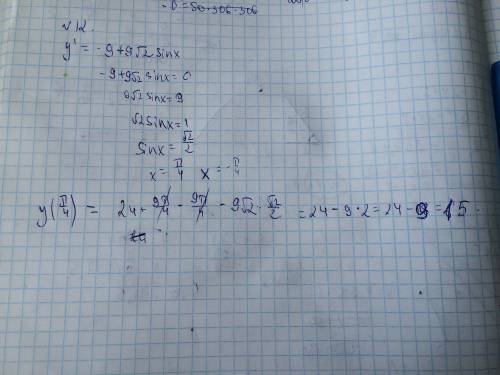 - D = 50 + 306 - 306
№12.
y' = -9+9√2 sinx
-9+9√2 sinx=0
9√2 sinx=9
√2 sinx=1
sinx= √2/2
x= π/4 x= -π/4
y(π/4) = 24+ 9π/4 - 9π/4 - 9√2 · √2/2 = 24 - 9·2 = 24 - 9 = 15.